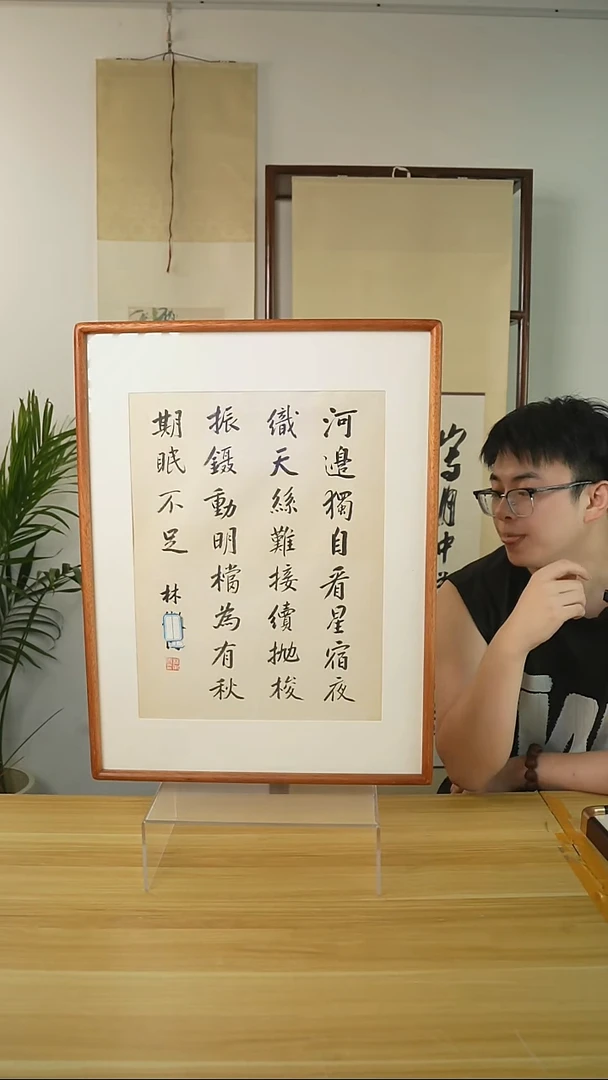 河邊獨自看星宿夜
織天絲難接續拋梭
振鑷動明檔為有秋
期眠不足
林
月中